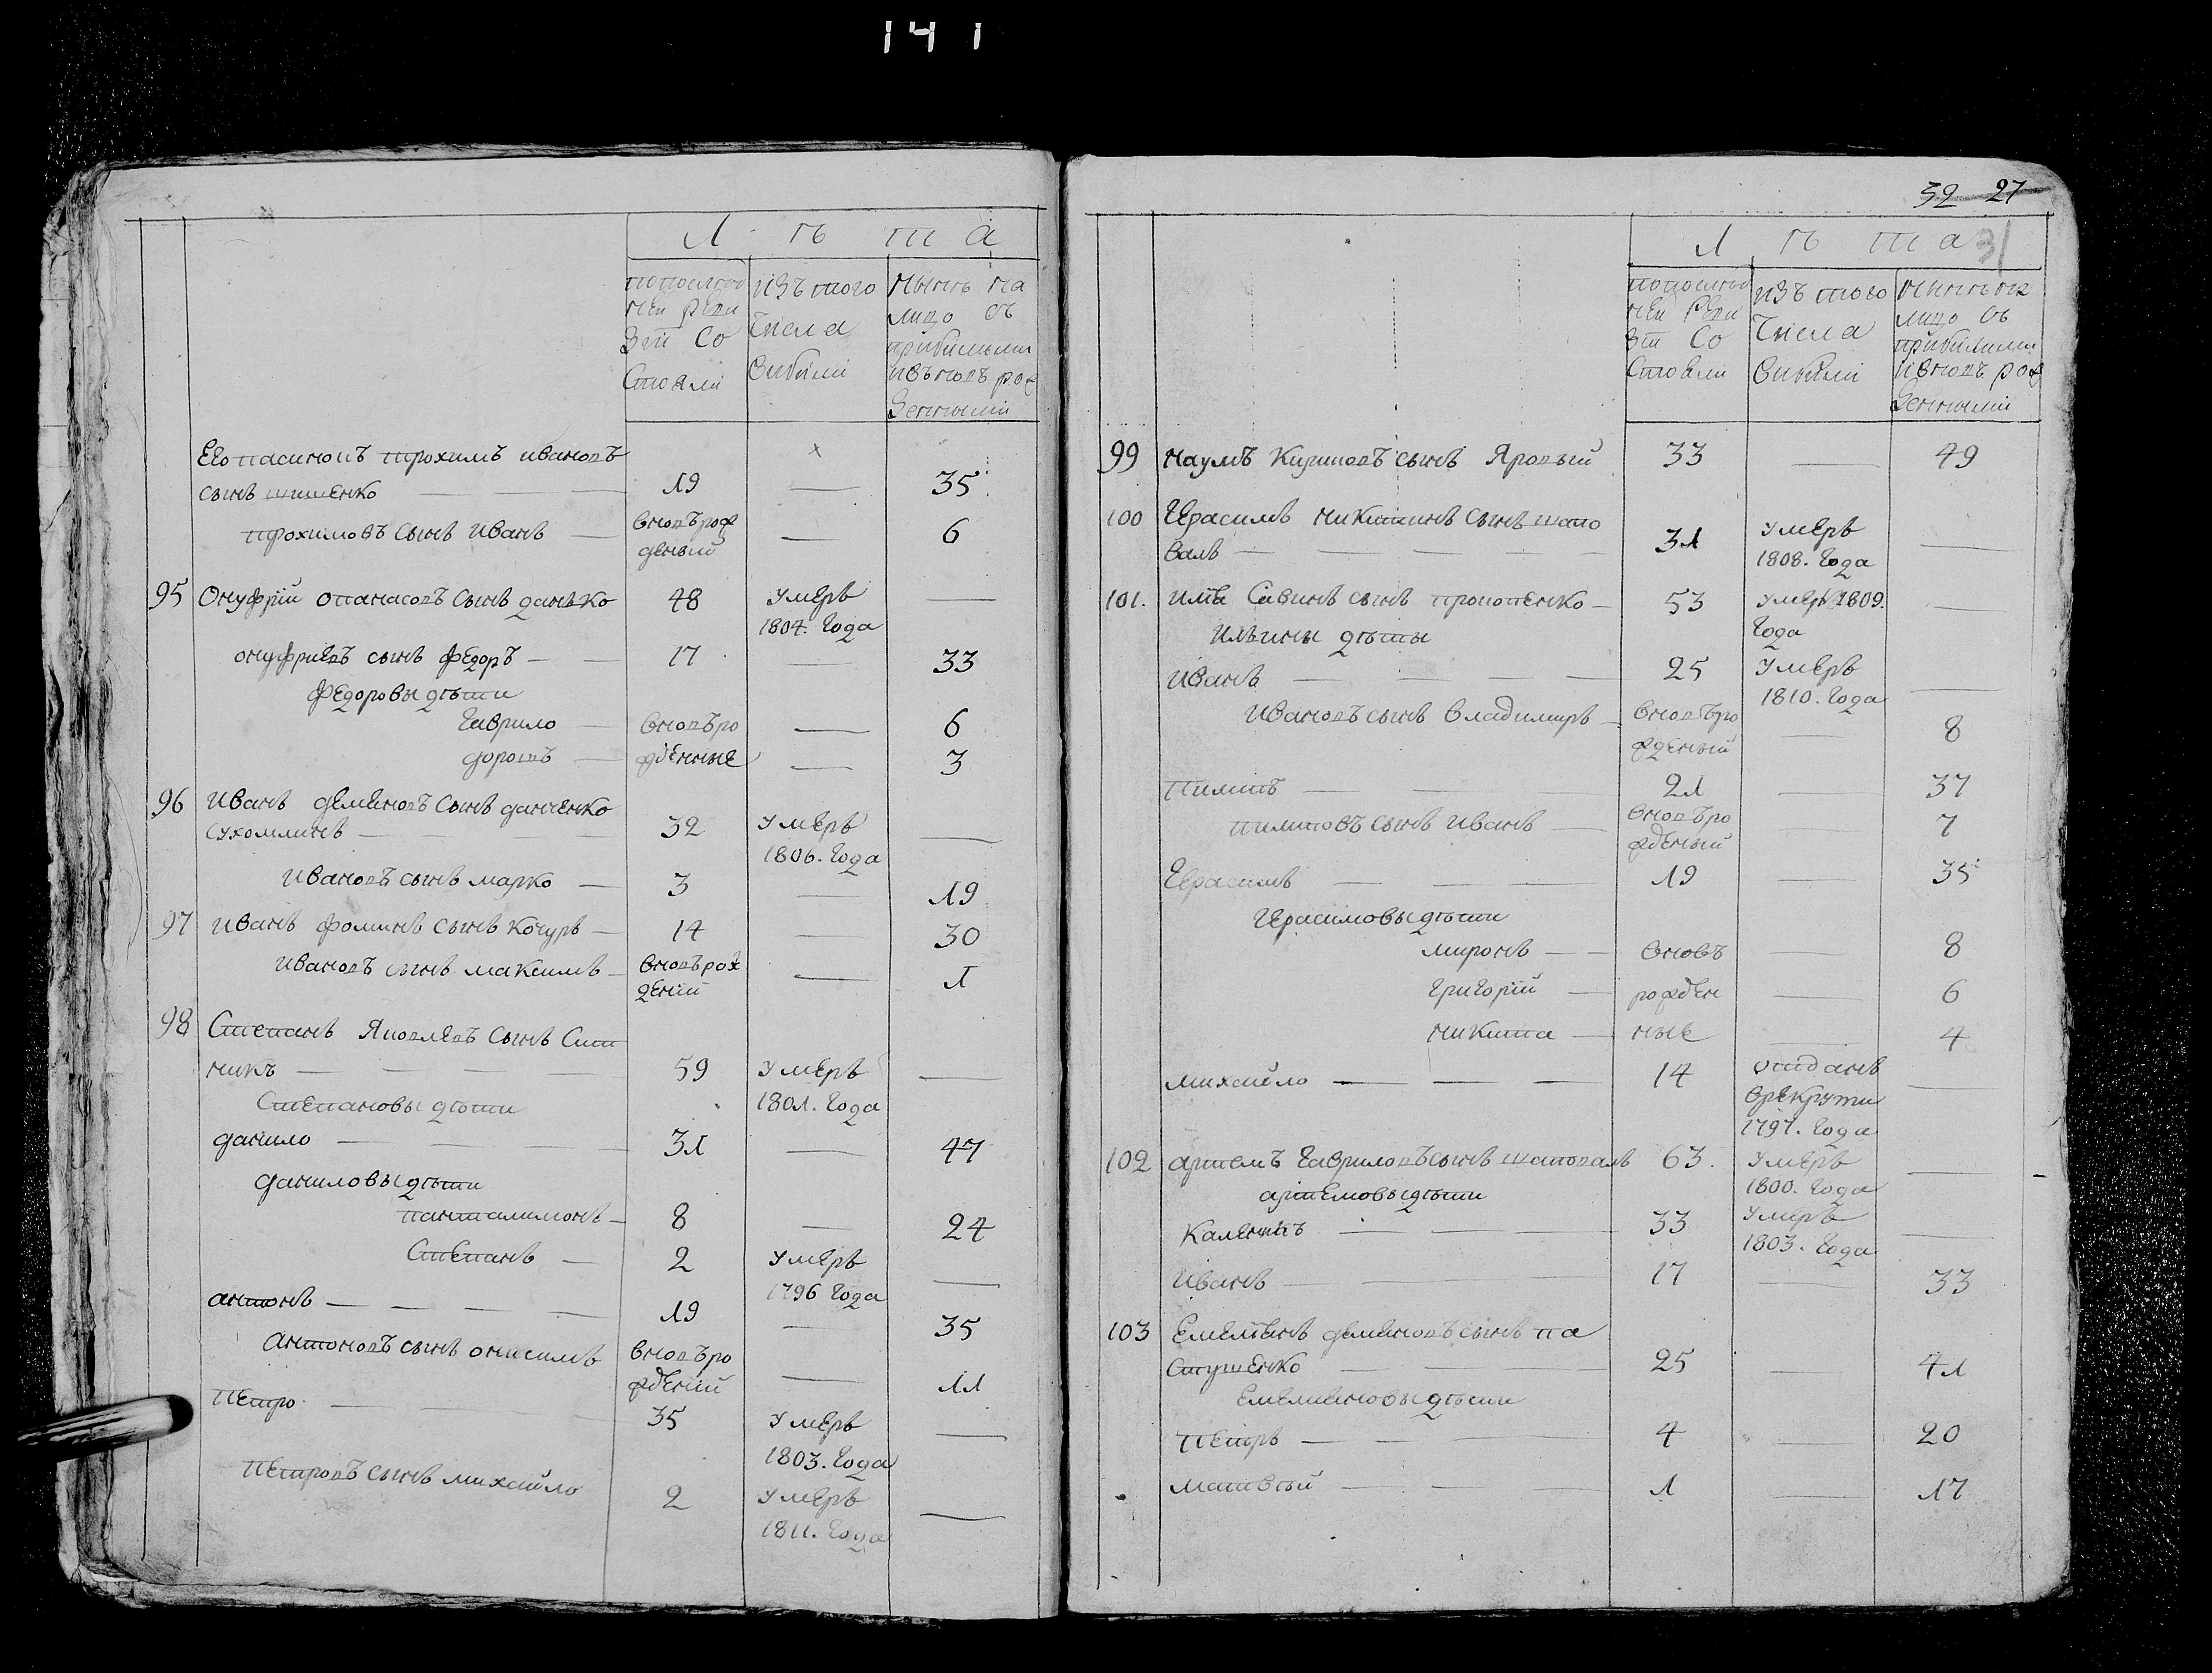 141
Лѣта
попослѣд
ней реви
зіи Со
Стояли
изъ того
Числа
Выбыли
Нынѣ на
лицо съ
прибылыми
ивновъ рож
денными
Его пасинокъ трохимъ ивановъ
сынъ шишенко — 19 — 35
трохимовъ сынъ иванъ — вновърож
деный — 6
95 Онуфрій опанасовъ сынъ данько 48 умеръ —
1804. Года
онуфриевъ сынъ федоръ — 17 — 33
федоровы дѣти
Гаврило — вновъро — 6
дорошъ — жденные — 3
96 иванъ деменовъ сынъ данченко
сухомлинъ — 32 умеръ —
1806. Года
ивановъ сынъ марко — 3 — 19
97 иванъ фоминъ сынъ кочуръ — 14 — 30
ивановъ сынъ максимъ — вновърож — 1
дений
98 Степанъ Яковлевъ сынъ Сит
никъ — 59 умеръ —
Степановы дѣти 1801. Года
данило — 31 — 47
даниловы дѣти
панталимонъ — 8 — 24
Степанъ — 2 умеръ —
1796 Года
антонъ — 19 — 35
Антоновъ сынъ онисимъ вновъро — 11
ждений
петро — 35 умеръ —
1803. Года
петровъ сынъ михайло 2 умеръ —
1811. Года
32 27
Лѣта 31
попослѣд
ней Реви
зіи Со
Стояли
изъ того
Числа
Выбыли
Нынѣ на
лицо съ
прибылыми
ивновъ рож
денными
99 наумъ Кириловъ сынъ Яровый 33 — 49
100 Герасимъ никитинъ сынъ шапо
валъ — 31 умеръ —
1808. Года
101. илья Савинъ сынъ прокопенко — 53 умеръ 1809. —
ильины дѣты Года
иванъ — 25 умеръ —
1810. Года
ивановъ сынъ владимиръ — вновъро — 8
жденый
пилипъ — 21 — 37
пилиповъ сынъ иванъ — вновъро — 7
жденый
Герасимъ — 19 — 35
Герасимовы дѣти
миронъ — вновъ — 8
григорій — рожден — 6
никита — ные — 4
михайло — 14 отданъ —
врекруты
1797. Года
102 артемъ Гавриловъ сынъ шаповалъ 63. умеръ —
артемовы дѣти 1800. Года
Каленикъ — 33 умеръ —
1803. Года
Иванъ — 17 — 33
103 Емельянъ деменовъ сынъ па
стушенко — 25 — 41
Емельяновы дѣти
петръ — 4 — 20
матвѣй — 1 — 17